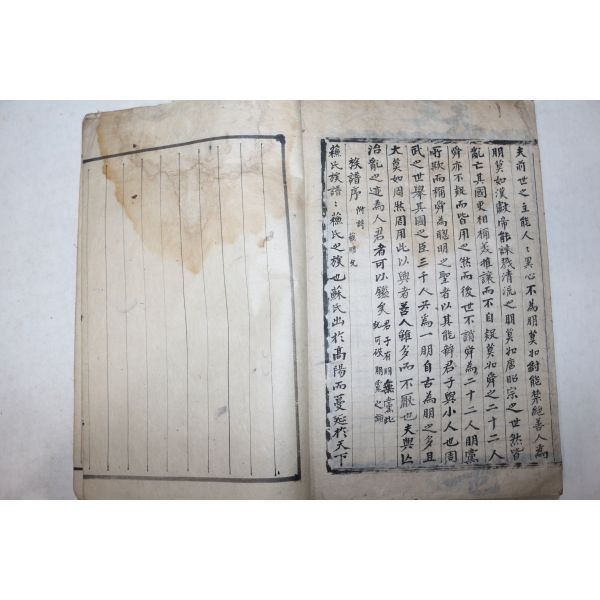 夫前世之主能人〻異心不為朋莫如紂能禁絕善人為
朋莫如漢獻帝能誅戮清流之朋莫如唐昭宗之世然皆
亂亡其國更相稱美推讓而不自疑莫如舜之二十二人
舜亦不疑而皆用之然而後世不誚舜為二十二人朋黨
所欺而稱舜為聰明之聖者以其能辨君子與小人也周
武之世舉其國之臣三千人共為一朋自古為朋之多且
大莫如周然周用此以興者善人雖多而不厭也夫興亡
治亂之迹為人君者可以鑑矣 君子有朋無黨此
朋黨之論
族譜序
蘇氏族譜〻蘇氏之族也蘇氏出於高陽而蔓延於天下